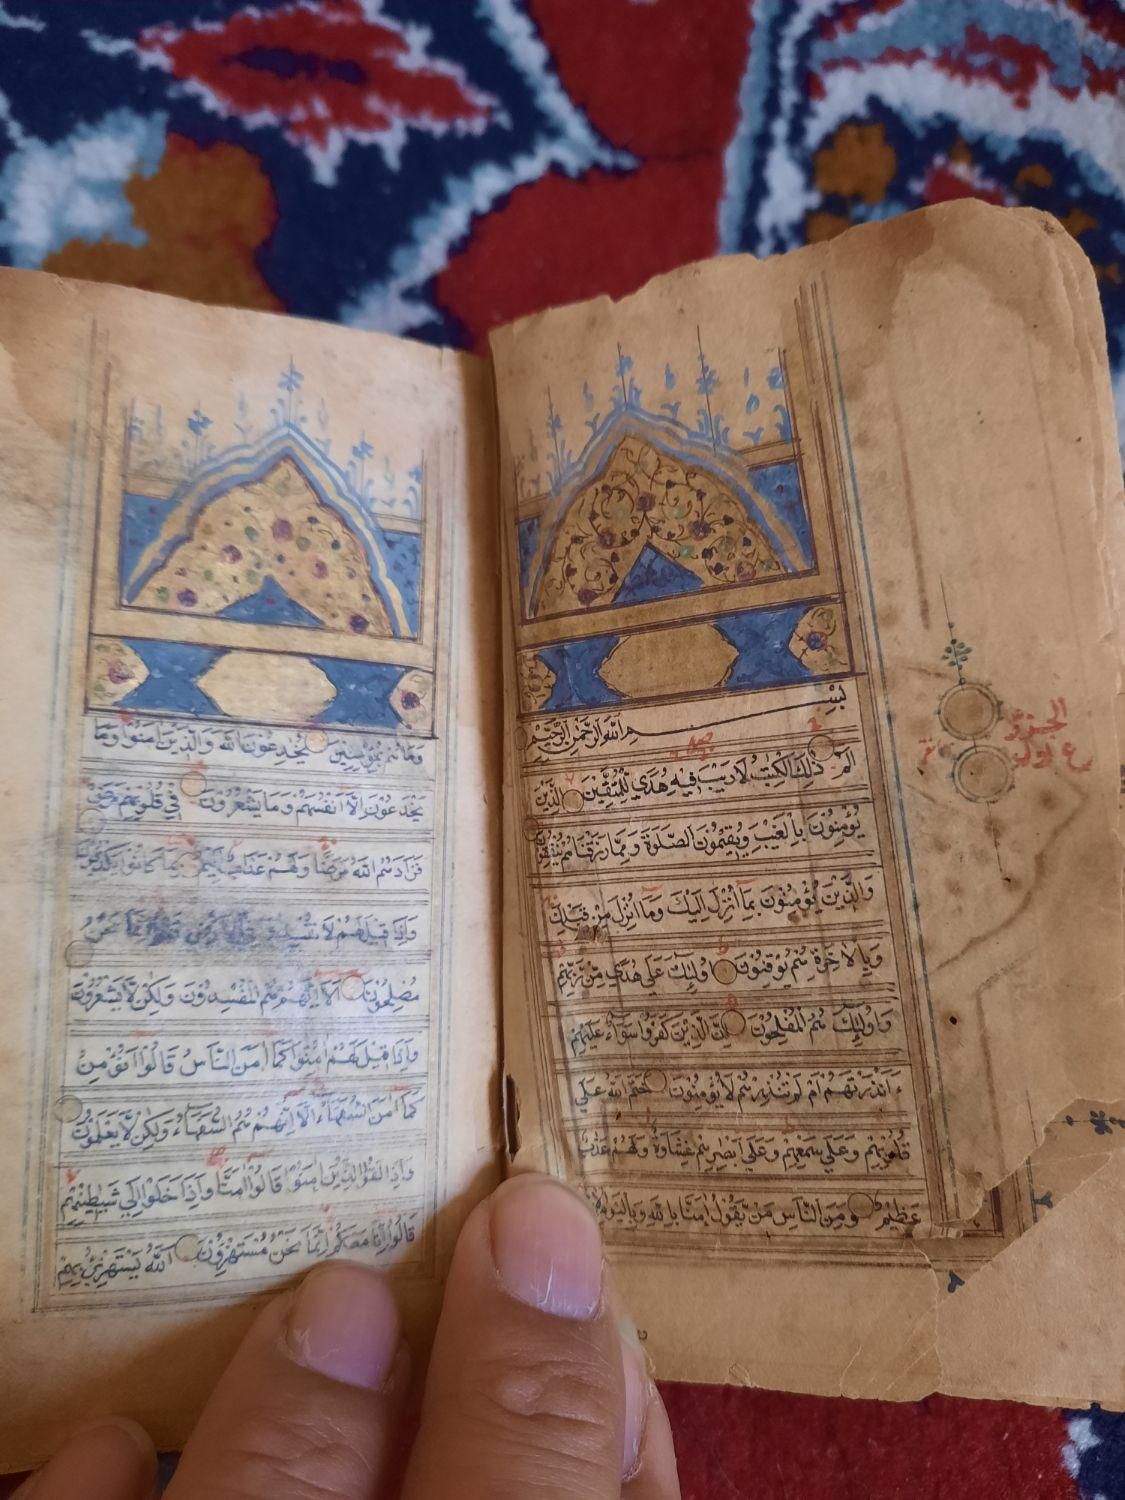 بِسْمِ اللّٰهِ الرَّحْمٰنِ الرَّحِيمِ
الم ذٰلِكَ الْكِتٰبُ لَا رَيْبَ فِيهِ هُدًى لِلْمُتَّقِينَ الَّذِينَ
يُؤْمِنُونَ بِالْغَيْبِ وَيُقِيمُونَ الصَّلٰوةَ وَمِمَّا رَزَقْنَاهُمْ يُنْفِقُونَ
وَالَّذِينَ يُؤْمِنُونَ بِمَا أُنْزِلَ إِلَيْكَ وَمَا أُنْزِلَ مِنْ قَبْلِكَ
وَبِالْاٰخِرَةِ هُمْ يُوقِنُونَ أُولٰئِكَ عَلٰى هُدًى مِنْ رَبِّهِمْ
وَأُولٰئِكَ هُمُ الْمُفْلِحُونَ إِنَّ الَّذِينَ كَفَرُوا سَوَاءٌ عَلَيْهِمْ
ءَاَنْذَرْتَهُمْ أَمْ لَمْ تُنْذِرْهُمْ لَا يُؤْمِنُونَ خَتَمَ اللّٰهُ عَلٰى
قُلُوبِهِمْ وَعَلٰى سَمْعِهِمْ وَعَلٰى أَبْصٰرِهِمْ غِشَاوَةٌ وَلَهُمْ عَذَابٌ
عَظِيمٌ وَمِنَ النَّاسِ مَنْ يَقُولُ اٰمَنَّا بِاللّٰهِ وَبِالْيَوْمِ
الجزؤ
اول
وَمَا هُمْ بِمُؤْمِنِينَ يُخٰدِعُونَ اللّٰهَ وَالَّذِينَ اٰمَنُوا وَمَا
يَخْدَعُونَ إِلَّا أَنْفُسَهُمْ وَمَا يَشْعُرُونَ فِي قُلُوبِهِمْ مَرَضٌ
فَزَادَهُمُ اللّٰهُ مَرَضًا وَلَهُمْ عَذَابٌ أَلِيمٌ بِمَا كَانُوا يَكْذِبُونَ
وَإِذَا قِيلَ لَهُمْ لَا تُفْسِدُوا إِنَّمَا نَحْنُ
مُصْلِحُونَ أَلَا إِنَّهُمْ هُمُ الْمُفْسِدُونَ وَلٰكِنْ لَا يَشْعُرُونَ
وَإِذَا قِيلَ لَهُمْ اٰمِنُوا كَمَا اٰمَنَ النَّاسُ قَالُوا أَنُؤْمِنُ
كَمَا اٰمَنَ السُّفَهَاءُ أَلَا إِنَّهُمْ هُمُ السُّفَهَاءُ وَلٰكِنْ لَا يَعْلَمُونَ
وَإِذَا لَقُوا الَّذِينَ اٰمَنُوا قَالُوا اٰمَنَّا وَإِذَا خَلَوْا إِلٰى شَيٰطِينِهِمْ
قَالُوا إِنَّا مَعَكُمْ إِنَّمَا نَحْنُ مُسْتَهْزِؤُنَ اَللّٰهُ يَسْتَهْزِئُ بِهِمْ